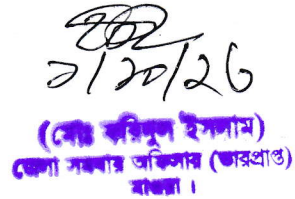 ১/১০/২৩
(মোঃ ফরিদুল ইসলাম)
জেলা সমবায় অফিসার (ভারপ্রাপ্ত)
মাগুরা।